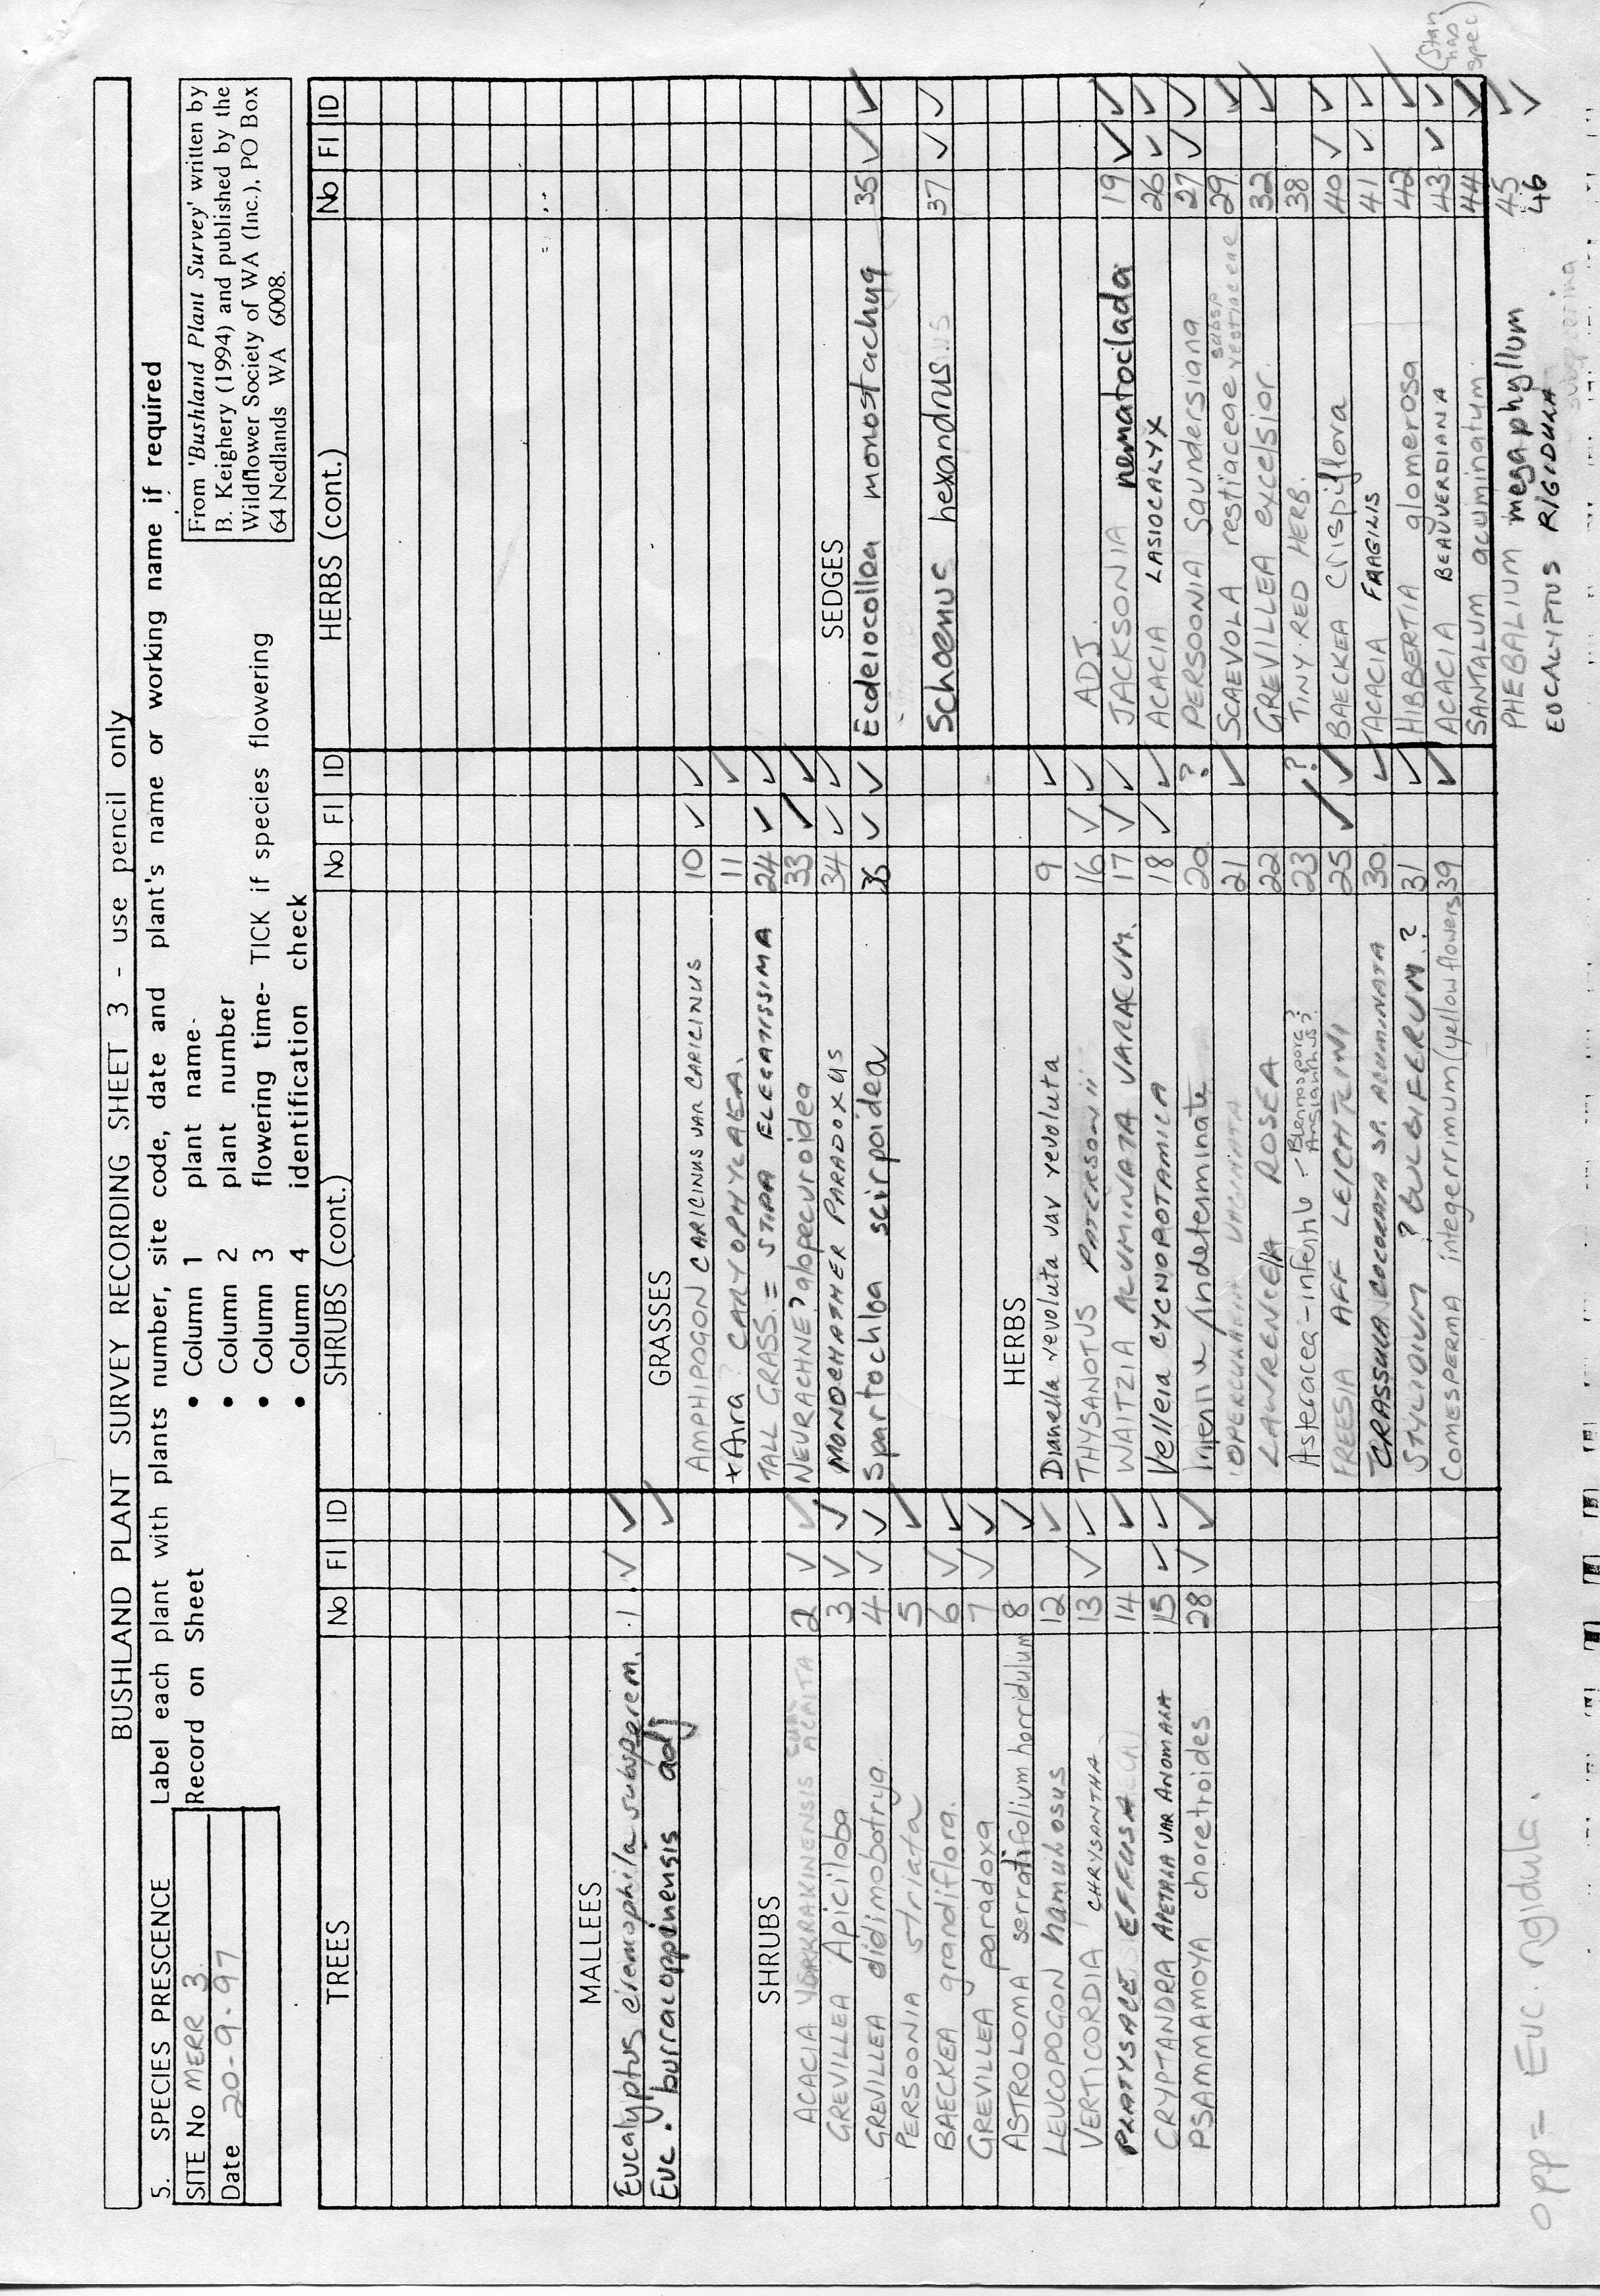 BUSHLAND PLANT SURVEY RECORDING SHEET 3 - use pencil only
5. SPECIES PRESENCE
SITE No MERR 3
Date 20-9-97
Label each plant with plants number, site code, date and plant's name or working name if required
Record on Sheet
• Column 1 plant name
• Column 2 plant number
• Column 3 flowering time- TICK if species flowering
• Column 4 identification check
From 'Bushland Plant Survey' written by
B. Keighery (1994) and published by the
Wildflower Society of WA (Inc.), PO Box
64 Nedlands WA 6008.
TREES No Fl ID
MALLEES
Eucalyptus eremophila subsp erem. 1 ✓ ✓
Euc. burracoppinensis adj ✓
SHRUBS
ACACIA YORKRAKINENSIS ACRITA 2 ✓ ✓
GREVILLEA Apiciloba 3 ✓ ✓
GREVILLEA didimobotrya 4 ✓ ✓
PERSOONIA striata 5 ✓
BAECKEA grandiflora. 6 ✓ ✓
GREVILLEA paradoxa 7 ✓ ✓
ASTROLOMA serratifolium horridulum 8 ✓
LEUCOPOGON hamulosus 12 ✓
VERTICORDIA CHRYSANTHA 13 ✓ ✓
PLATYSACE EFFUSA 14 ✓
CRYPTANDRA APETALA VAR ANOMALA 15 ✓ ✓
PSAMMAMOYA choretroides 28 ✓ ✓
SHRUBS (cont.) No Fl ID
GRASSES
AMPHIPOGON CARICINUS VAR CARICINUS 10 ✓ ✓
*Aira CARYOPHYLAEA. 11 ✓
TALL GRASS. = STIPA ELEGATISSIMA 24 ✓ ✓
NEURACHNE ? alopecuroidea 33 ✓ ✓
MONOCHATHER PARADOXUS 34 ✓ ✓
Spartochloa scirpoidea 36 ✓ ✓
HERBS
Dianella revoluta var revoluta 9 ✓
THYSANOTUS PATERSONII 16 ✓ ✓
WAITZIA ACUMINATA VARACUM. 17 ✓ ✓
Velleia CYCNOPOTAMICA 18 ✓ ✓
Indeterminate 20 ?
OPERCULARIA VAGINATA 21 ✓
LAWRENCELLA ROSEA 22
Asteraceae - infertile - Blennospora? Angianthus? 23 ?
FREESIA AFF LEICHTLINII 25 ✓ ✓
CRASSULA COLORATA SP. ACUMINATA 30 ✓
STYLIDIUM ? BULBIFERUM ? 31 ✓
COMESPERMA integerrimum (yellow flowers) 39 ✓
HERBS (cont.) No Fl ID
SEDGES
Ecdeiocollea monostachya 35 ✓ ✓
Schoenus hexandrus 37 ✓ ✓
ADJ.
JACKSONIA nematoclada 19 ✓ ✓
ACACIA LASIOCALYX 26 ✓ ✓
PERSOONIA saundersiana 27 ✓ ✓
SCAEVOLA restiaceae subsp restiaceae 29 ✓
GREVILLEA excelsior. 32 ✓
TINY RED HERB. 38
BAECKEA crispiflora 40 ✓ ✓
ACACIA FRAGILIS 41 ✓ ✓
HIBBERTIA glomerosa 42 ✓
ACACIA BEAUVERDIANA 43 ✓ ✓ (Stan has spec)
SANTALUM acuminatum 44 ✓
PHEBALIUM megaphyllum 45 ✓
EUCALYPTUS RIGIDULA 46 ✓
opp = Euc. rigidula.